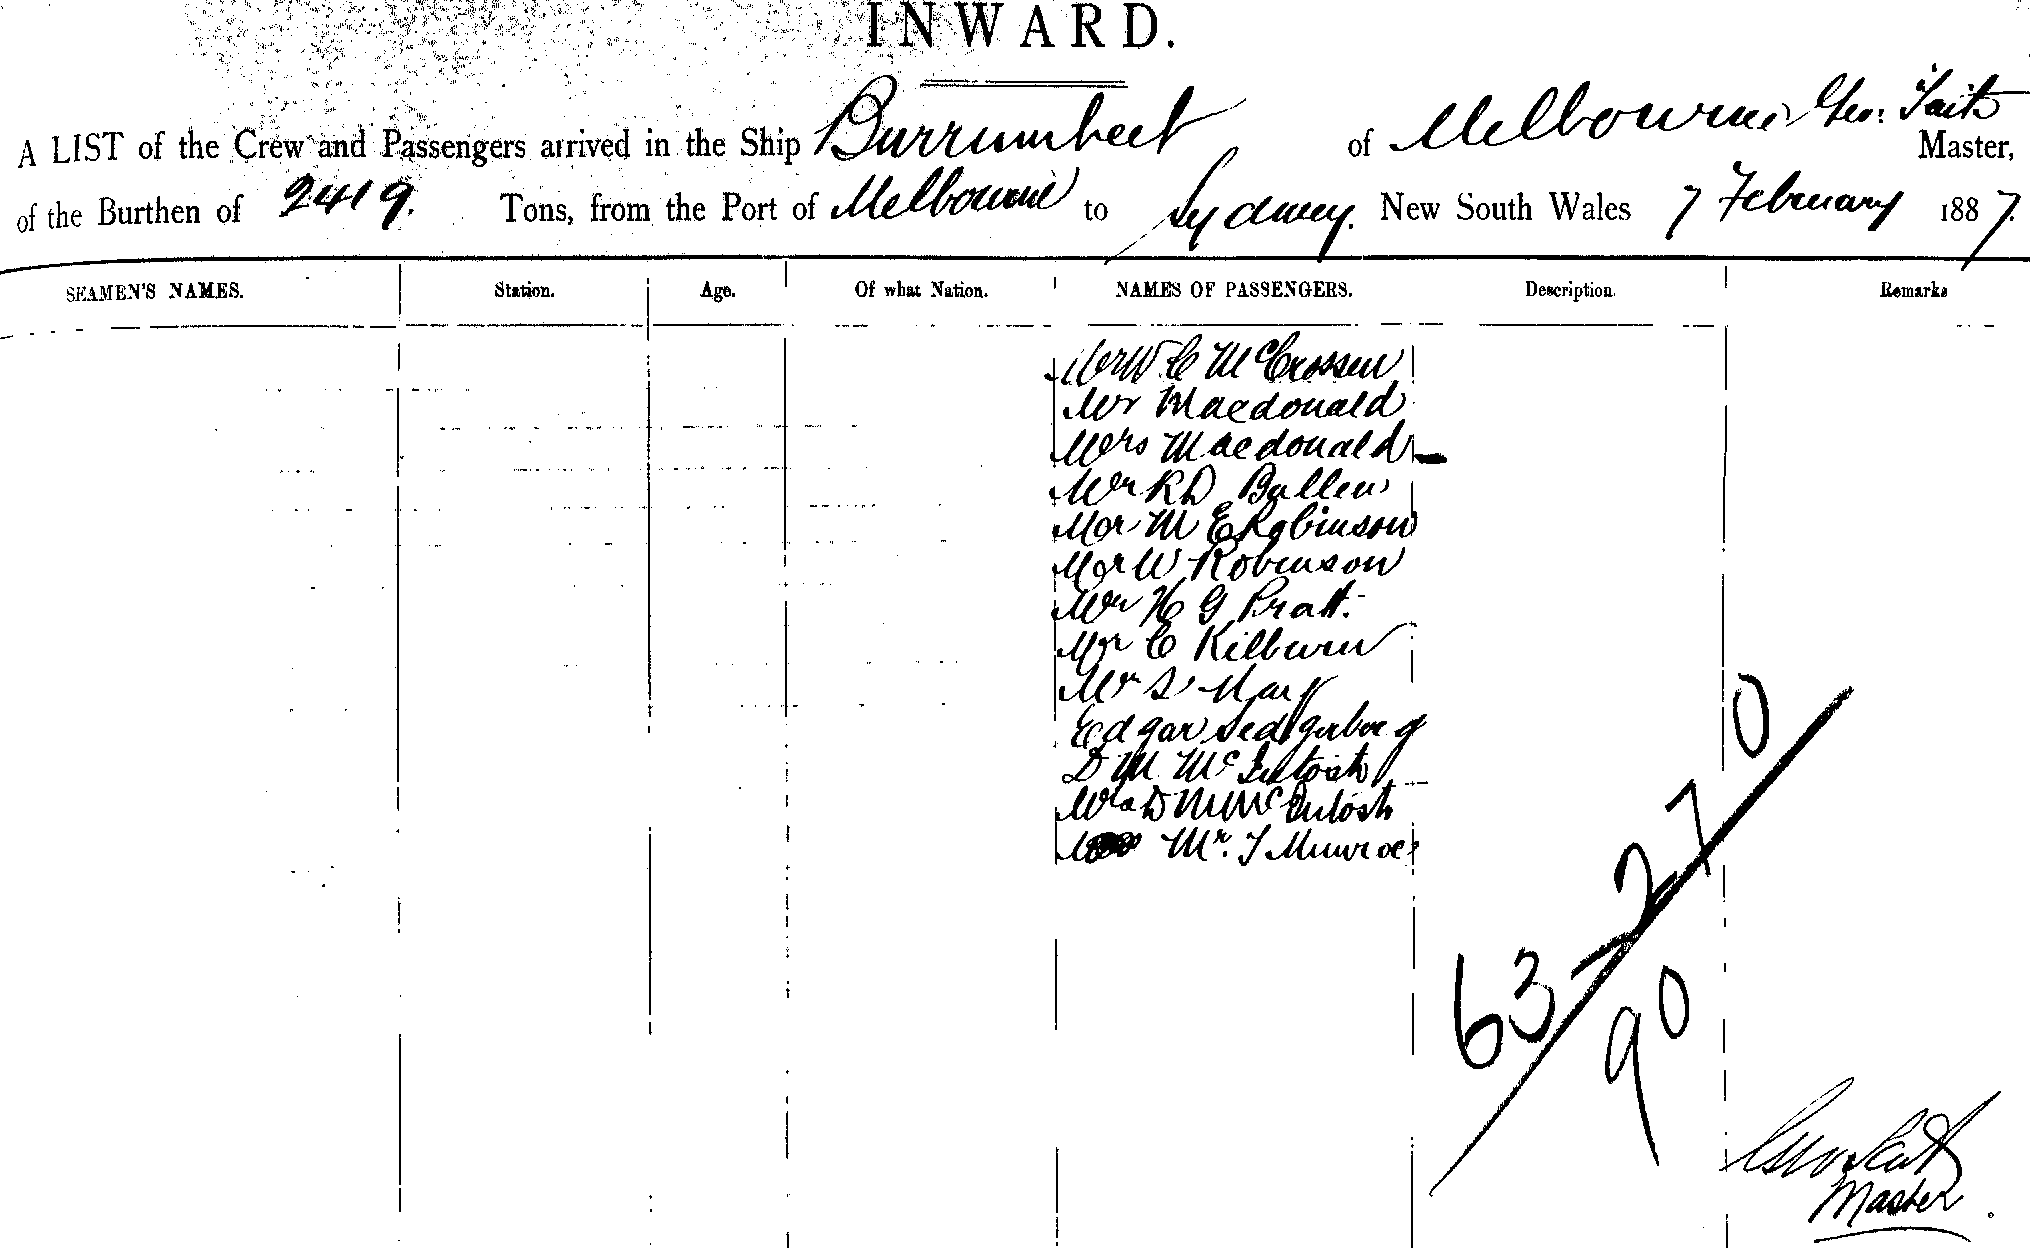 INWARD.
A LIST of the Crew and Passengers arrived in the Ship Burrumbeet of Melbourne Geo: Tait Master,
of the Burthen of 2419. Tons, from the Port of Melbourne to Sydney. New South Wales 7 February 1887.
SEAMEN'S NAMES. Station. Age. Of what Nation. NAMES OF PASSENGERS. Description. Remarks
Mr W C McCrossen
Mr Macdonald
Mrs Macdonald
Mr R D Bullen
Mr M E Robinson
Mr W Robinson
Mr H G Pratt.
Mr C Kilburn
Mr S
Edgar
D M McIntosh
Mrs D M McIntosh
Mr. J Munroe
63 - 27 0
90
Geo Tait
Master.